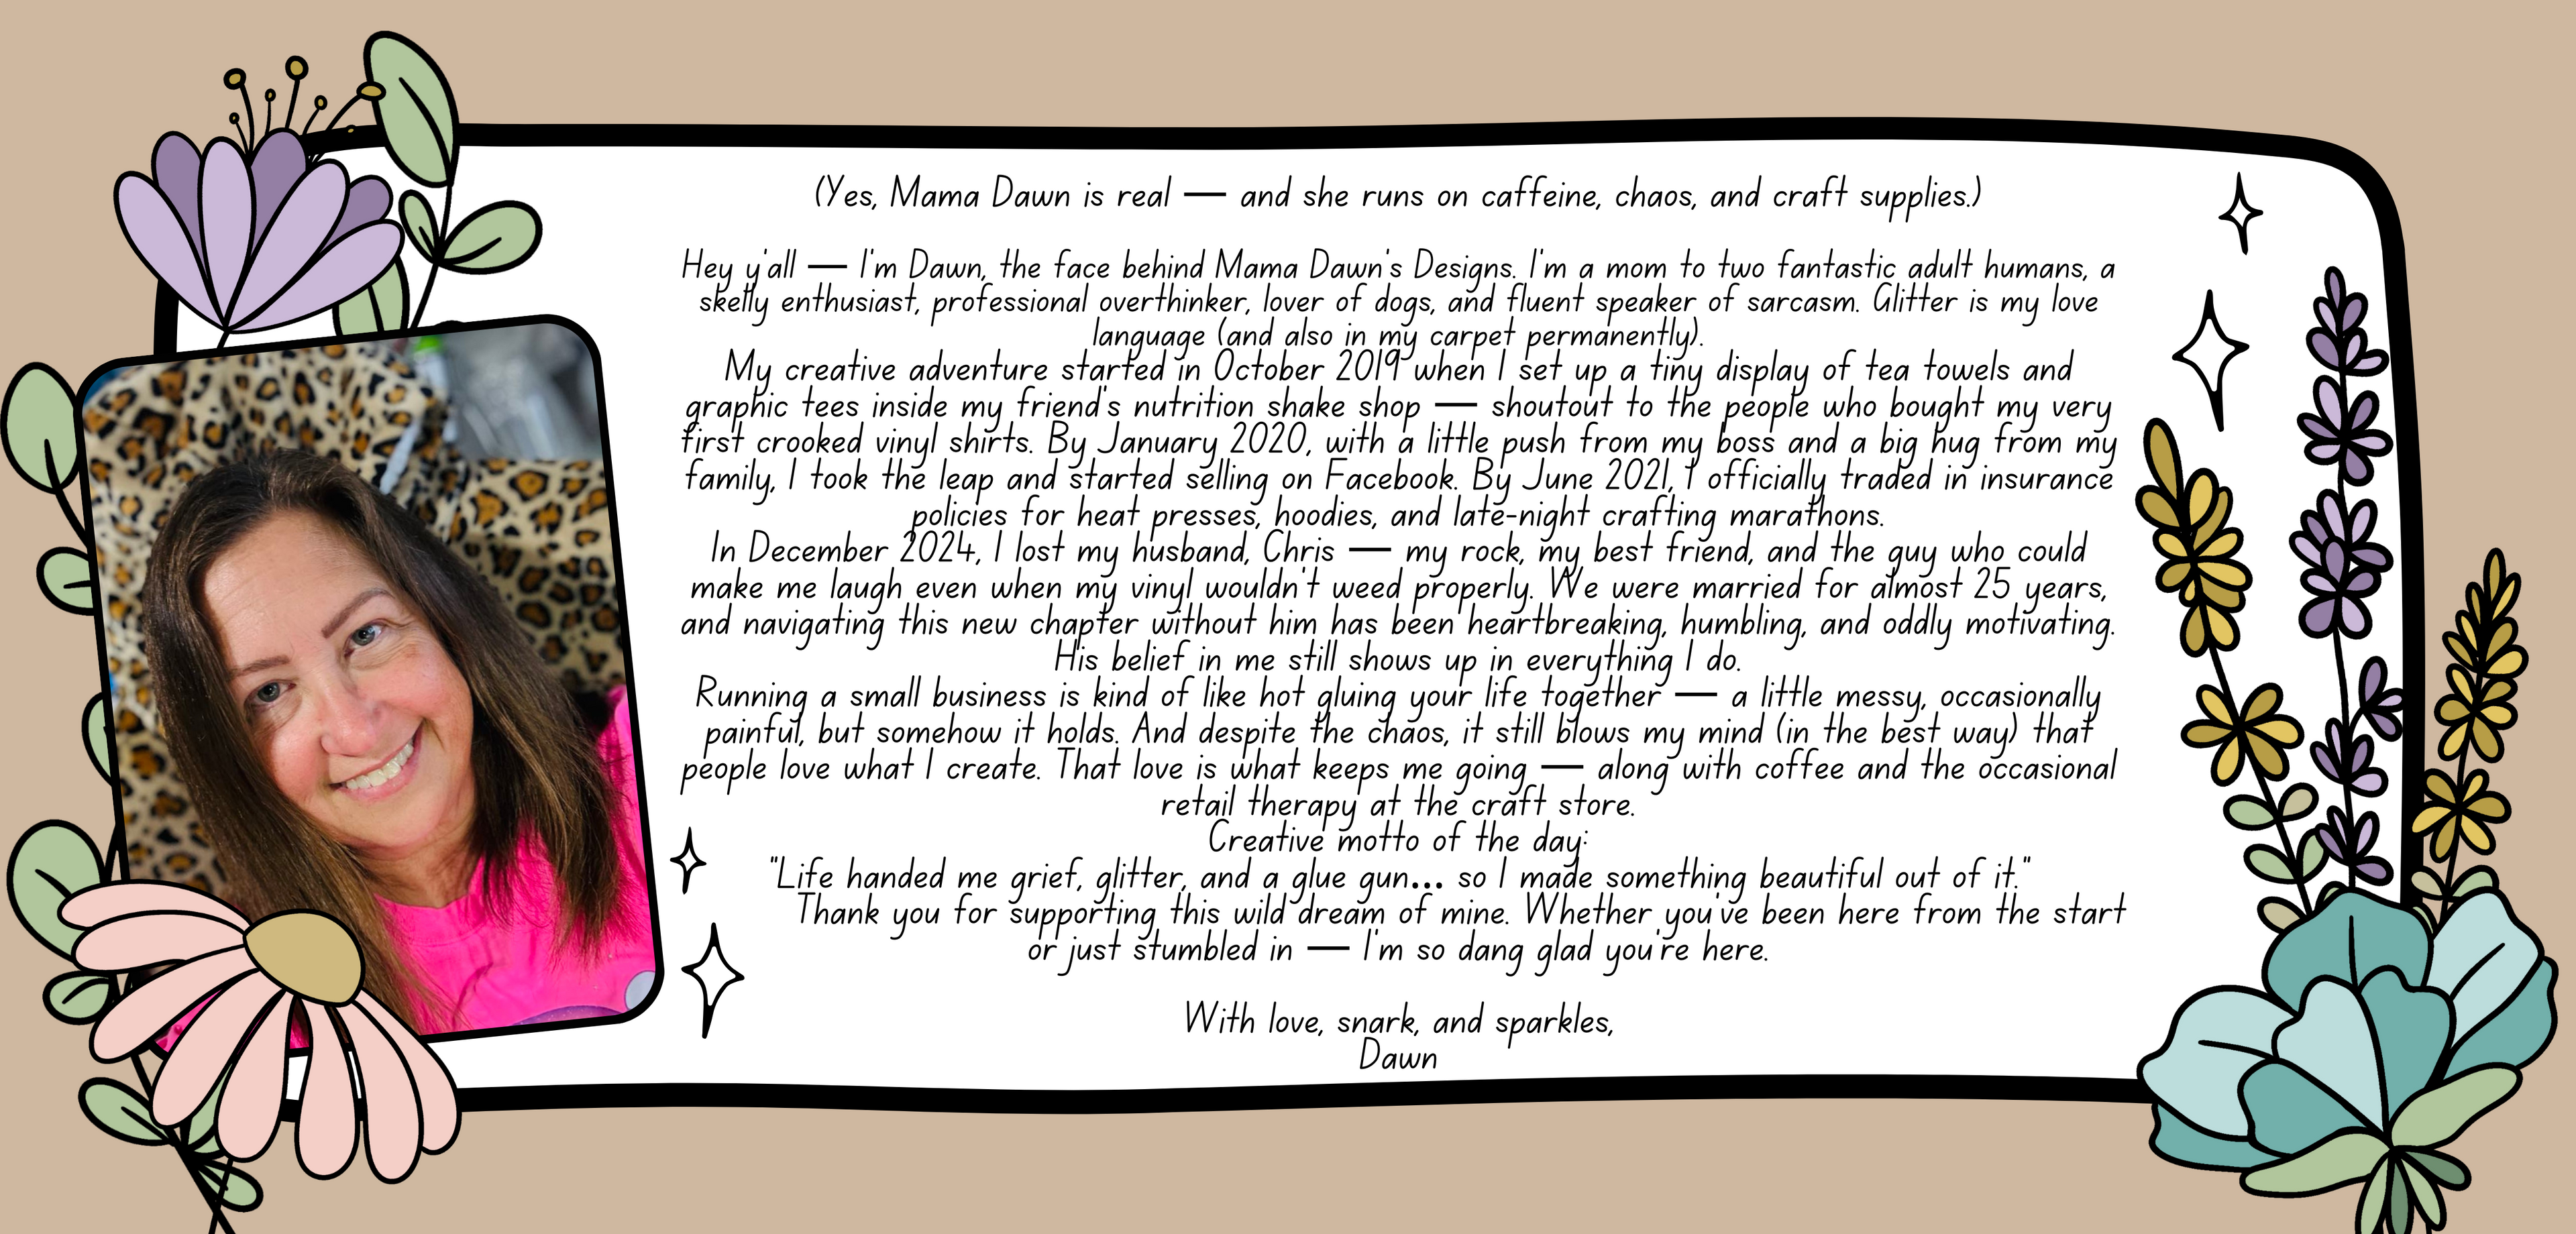 (Yes, Mama Dawn is real — and she runs on caffeine, chaos, and craft supplies.)
Hey y'all — I'm Dawn, the face behind Mama Dawn's Designs. I'm a mom to two fantastic adult humans, a
skelly enthusiast, professional overthinker, lover of dogs, and fluent speaker of sarcasm. Glitter is my love
language (and also in my carpet permanently).
My creative adventure started in October 2019 when I set up a tiny display of tea towels and
graphic tees inside my friend's nutrition shake shop — shoutout to the people who bought my very
first crooked vinyl shirts. By January 2020, with a little push from my boss and a big hug from my
family, I took the leap and started selling on Facebook. By June 2021, I officially traded in insurance
policies for heat presses, hoodies, and late-night crafting marathons.
In December 2024, I lost my husband, Chris — my rock, my best friend, and the guy who could
make me laugh even when my vinyl wouldn't weed properly. We were married for almost 25 years,
and navigating this new chapter without him has been heartbreaking, humbling, and oddly motivating.
His belief in me still shows up in everything I do.
Running a small business is kind of like hot gluing your life together — a little messy, occasionally
painful, but somehow it holds. And despite the chaos, it still blows my mind (in the best way) that
people love what I create. That love is what keeps me going — along with coffee and the occasional
retail therapy at the craft store.
Creative motto of the day:
"Life handed me grief, glitter, and a glue gun... so I made something beautiful out of it."
Thank you for supporting this wild dream of mine. Whether you've been here from the start
or just stumbled in — I'm so dang glad you're here.
With love, snark, and sparkles,
Dawn